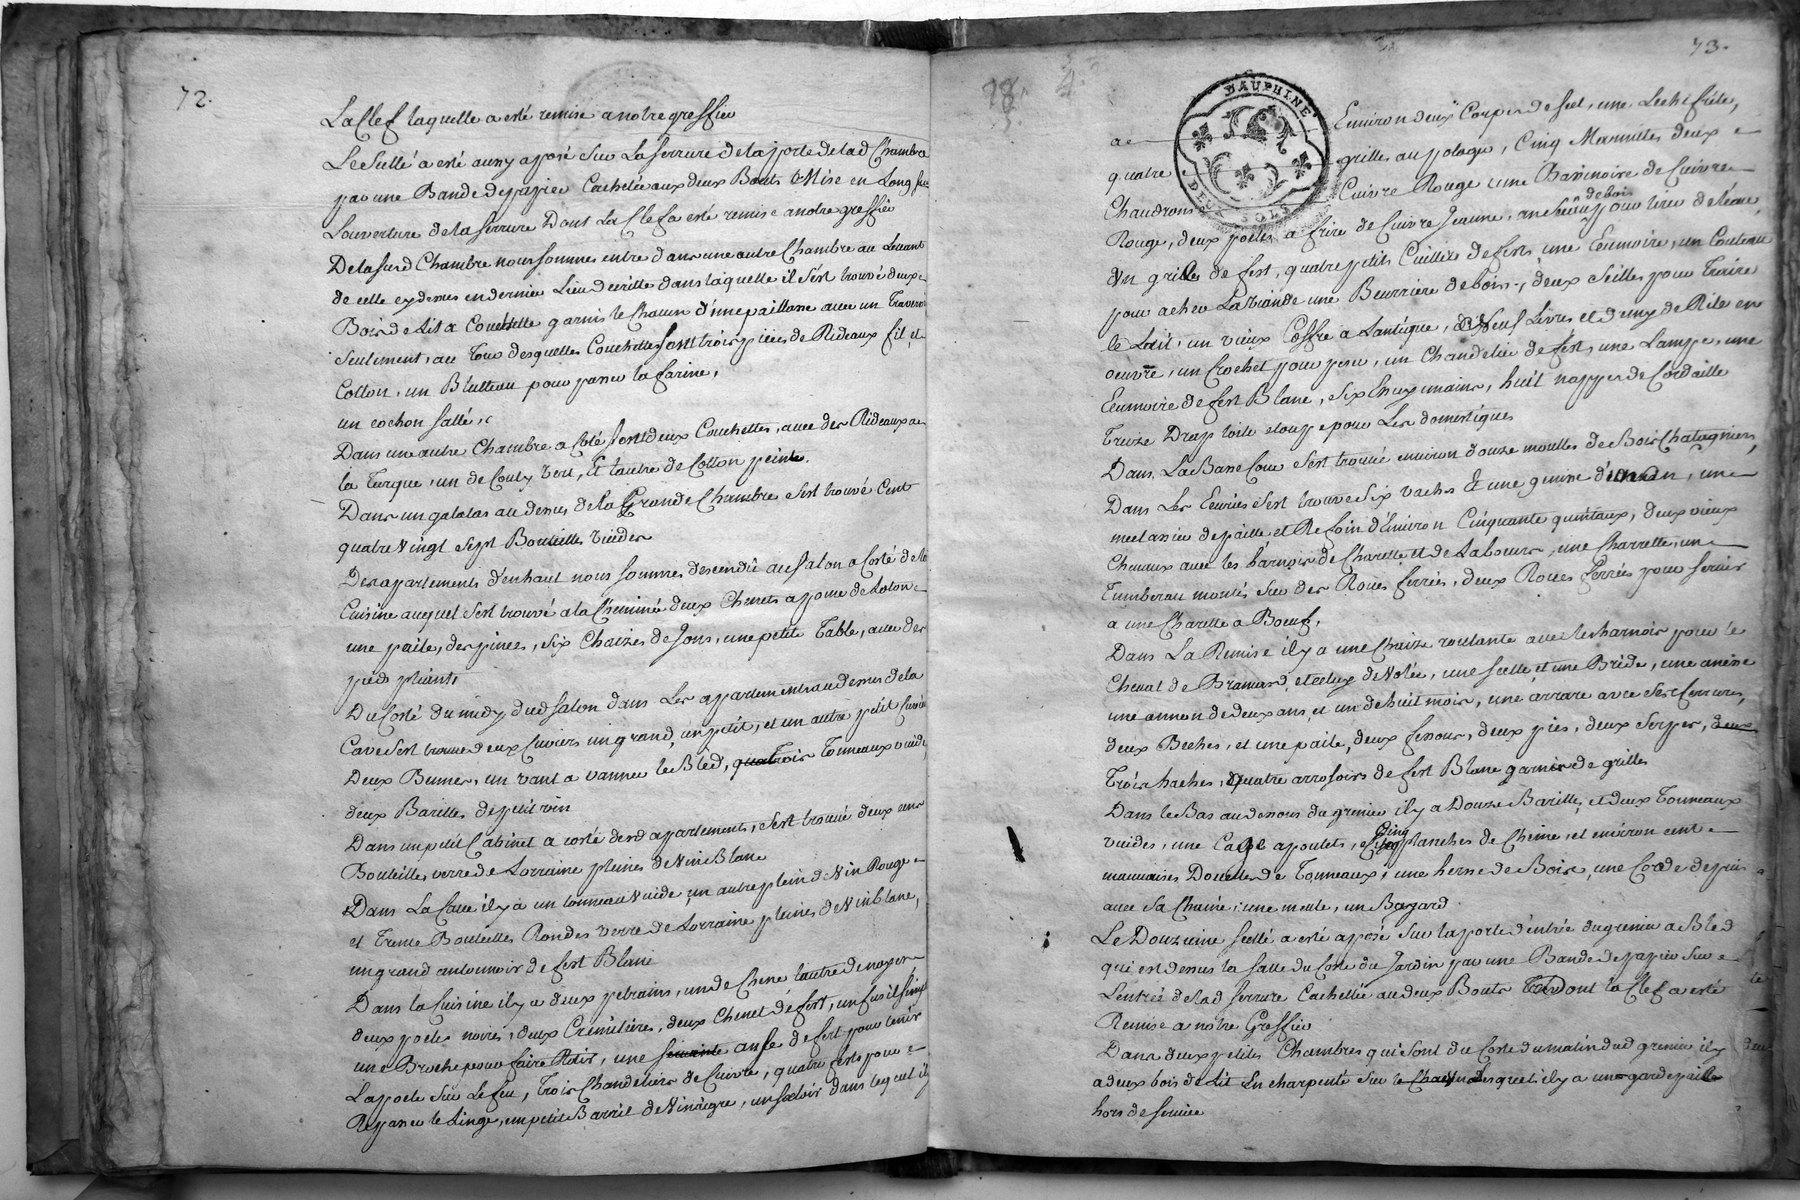 72.
La Clef laquelle a esté remise a notre greffier
Le Scellé a esté aussy aposé Sur La Serrure de la porte de lad Chambre
par une Bande de papier Cachetée aux deux Bouts & Mise en Long sur
Louverture de la Serrure Dont La Clef a esté remise a notre greffier
De la susd Chambre nous sommes entre dans une autre Chambre au Levant
de celle cy dessus en dernier Lieu decritte dans laquelle il s'est trouvé deux
Bois de Lit a Couchette garnis le Chacun d'une paillasse avec un Traversin
Seulement, au Tour desquelles Couchettes sont trois pieces de Rideaux fil et
Cotton, un Blutteau pour passer la farine,
un cochon sallé,
Dans une autre Chambre a Coté sont deux Couchettes, avec des Rideaux a
la Turque, un de Couty Vert, Et lautre de Cotton peint.
Dans un galatas au dessus de la Grande Chambre s'est trouvé Cent
quatre vingt Sept Bouteilles vuides
Des apartements d'enhaut nous sommes descendû au Salon a Costé de la
Cuisine auquel s'est trouvé a la Cheminée deux Chenets a pome de Loton
une paile, des pinces, Six Chaizes de Jons, une petite Table, avec des
pieds pliants
Du Costé du midy dud Salon dans Les appartements au dessus de la
Cave s'est trouvé deux Cuviers un grand, un petit, et un autre petit Cuvier
Deux Bennes, un vant a vanner le Bled, trois Tonneaux vuides,
deux Barilles de petit vin
Dans un petit Cabinet a costé desd appartements, s'est trouvé deux cens
Bouteilles verre de Lorraine pleines de Vin Blanc
Dans La Cave il y a un tonneau Vuide, un autre plein de Vin Rouge
et Trente Bouteilles Rondes verre de Lorraine pleines de Vin blanc,
un grand antonnoir de fert Blanc
Dans la Cuisine il y a deux petrains, un de Chene lautre de noyer
deux poeles noires, deux Crémilieres, deux Chenet de fert, un fusil simple
une Broche pour faire Rotir, une anse de fert pour tenir
La poele Sur Le feu, Trois Chandeliers de Cuivre, quatre ferts pour
Repasser le Linge, un petit Barril de Vinaigre, un saloir dans lequel il y
73.
DAUPHINE
DEUX SOLS
a Environ deux Coupes de Sel, une Lechefrite,
quatre grilles au potager, Cinq Marmittes deux
Chaudrons Cuivre Rouge une Bassinoire de Cuivre
Rouge, deux poeles a frire de Cuivre Jaune, un de bois pour tirer de l'eau,
Un grille de fert, quatre petits Cuilliers de fert, une Ecumoire, un Couteau
pour acher La Viande une Beurriere de bois, deux Seilles pour Traire
le Lait, un vieux Coffre a Lantique, Neuf Livres et demy de Rite en
oeuvre, un Crochet pour peser, un Chandelier de fert, une Lampe, une
Ecumoire de fert Blanc, Six Essuymains, huit nappes de Cordaille
Treize Drap toile etoupe pour Les domestiques
Dans La Basse Cour s'est trouvé environ douze moulles de Bois Chatagnier,
Dans Les Ecuries s'est trouvé Six vaches & une genisse d'un an, une
de paille et de foin d'Environ Cinquante quintaux, deux vieux
Chevaux avec les harnois de Charette et de Labours, une Charrette, un
Tumberau montés Sur des Roues ferrées, deux Roues ferrées pour Servir
a une Charette a Boeuf,
Dans La Remise il y a une Chaize roulante avec les harnois pour le
Cheval de Brancard, et celuy de Volée, une Selle et une Bride, une anesse
une annon de deux ans, et un de huit mois, une arrare avec Ses ferrures,
deux Beches, et une paile, deux fessous, deux pics, deux Serpes, deux
Trois haches, quatre arrosoirs de fert Blanc garnis de grilles
Dans le Bas au dessous du grenier il y a Douze Barilles, et deux Tonneaux
vuides, une Cage a poulets, Cinq planches de Chêne, et environ cent
mauvaises Douelles de Tonneaux, une herse de Bois, une Corde de puis
avec Sa Chaine, une meule, un Bayard.
Le Douzieme Scellé a esté aposé Sur la porte d'entrée du grenier a Bled
qui est dessus la Salle du Coté du Jardin par une Bande de papier Sur
L'entrée de lad Serrure Cachettée au deux Bouts Dont la Clef a esté
Remise a notre Greffier
Dans deux petites Chambres qui Sont du Coté du matin dud grenier il y
a deux bois de Lit En charpente Sur lesquels il y a un gardepaille
hors de Service